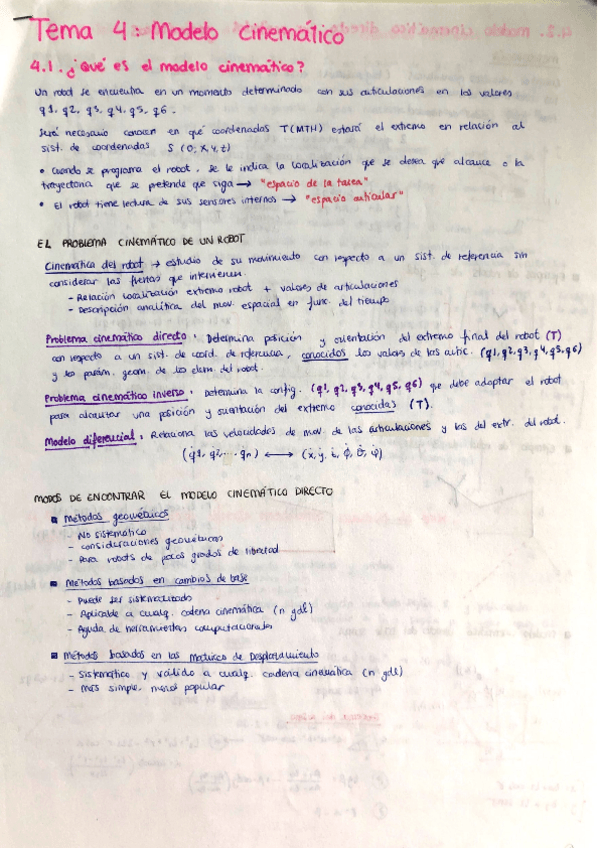 Tema 4: Modelo cinemático
4.1. ¿Qué es el modelo cinemático?
Un robot se encuentra en un momento determinado con sus articulaciones en los valores
q1, q2, q3, q4, q5, q6.
Será necesario conocer en qué coordenadas T(MTH) estará el extremo en relación al
sist. de coordenadas S (O; X, Y, Z)
• Cuando se programa el robot, se le indica la localización que se desea que alcance o la
trayectoria que se pretende que siga → "espacio de la tarea"
• El robot tiene lectura de sus sensores internos → "espacio articular"
EL PROBLEMA CINEMÁTICO DE UN ROBOT
Cinemática del robot → estudio de su movimiento con respecto a un sist. de referencia sin
considerar las fuerzas que intervienen.
- Relación localización extremo robot + valores de articulaciones
- Descripción analítica del mov. espacial en func. del tiempo
Problema cinemático directo: Determina posición y orientación del extremo final del robot (T)
con respecto a un sist. de coord. de referencia, conocidos los valores de las artic. (q1, q2, q3, q4, q5, q6)
y los parám. geom. de los elem del robot.
Problema cinemático inverso: Determina la config. (q1, q2, q3, q4, q5, q6) que debe adoptar el robot
para alcanzar una posición y orientación del extremo conocidas (T).
Modelo diferencial: Relaciona las velocidades de mov. de las articulaciones y las del extr. del robot.
(q̇1, q̇2, ... q̇n) ⟷ (ẋ, ẏ, ż, ϕ̇, θ̇, ψ̇)
MODOS DE ENCONTRAR EL MODELO CINEMÁTICO DIRECTO
Métodos geométricos
- No sistemático
- consideraciones geométricas
- Para robots de pocos grados de libertad
Métodos basados en cambios de base
- Puede ser sistematizado
- Aplicable a cualq. cadena cinemática (n gdl)
- Ayuda de herramientas computacionales
Métodos basados en las Matrices de Desplazamiento
- Sistemático y válido a cualq. cadena cinemática (n gdl)
- Más simple, menos popular